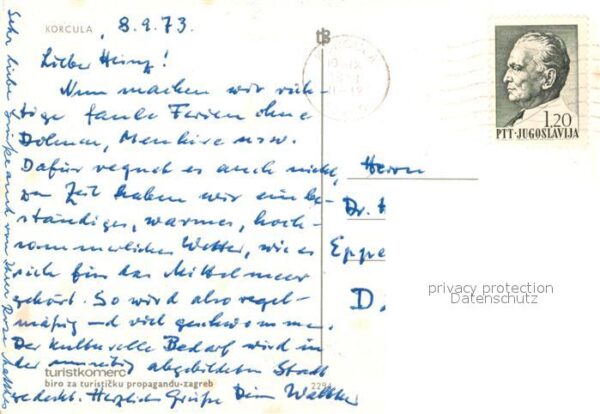 KORCULA, 8.9.73
Lieber Heinz!
Nun machen wir rich-
tige faule Ferien ohne
Dolmen, Menhire usw.
Dafür regnet es auch nicht,
zur Zeit haben wir ein be-
ständiges, warmes, hoch-
sommerliches Wetter, wie es
sich für das Mittelmeer
gehört. So wird also regel-
mäßig und viel geschwommen.
Der kulturelle Bedarf wird in
der umseitig abgebildeten Stadt
gedeckt. Herzliche Grüße Dein Walther
Sehr liebe Grüße auch von Ihrer Rose
turistkomerc
biro za turističku propagandu-zagreb
2294
tB
KORCULA
1.20
PTT-JUGOSLAVIJA
Herrn
Dr. H
Eppe
D.
privacy protection
Datenschutz